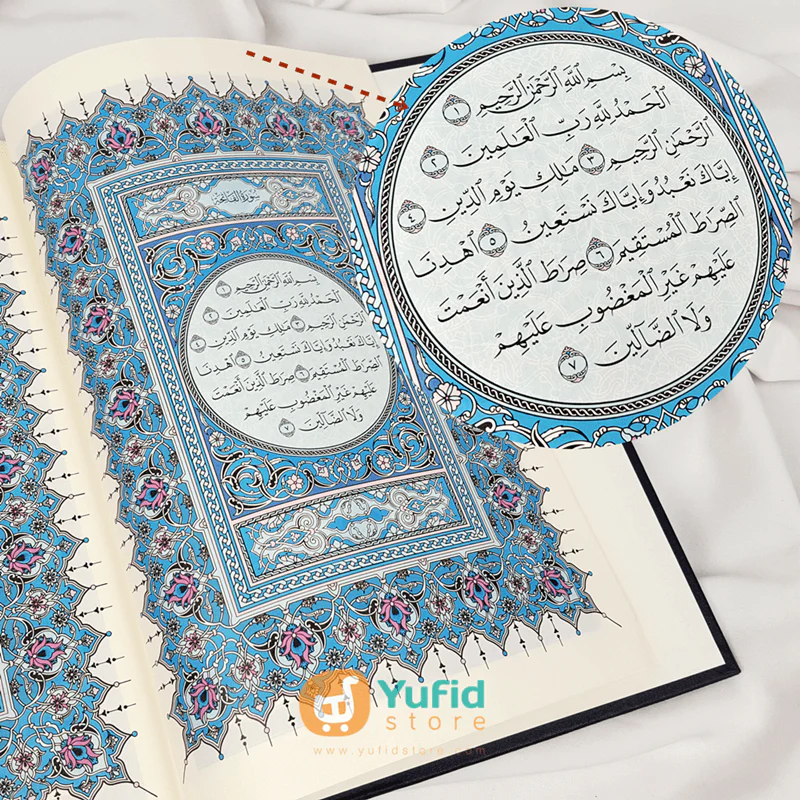 سُورَةُ الفَاتِحَةِ
بِسْمِ ٱللَّهِ ٱلرَّحْمَٰنِ ٱلرَّحِيمِ ١
ٱلْحَمْدُ لِلَّهِ رَبِّ ٱلْعَٰلَمِينَ ٢
ٱلرَّحْمَٰنِ ٱلرَّحِيمِ ٣ مَٰلِكِ يَوْمِ ٱلدِّينِ ٤
إِيَّاكَ نَعْبُدُ وَإِيَّاكَ نَسْتَعِينُ ٥ ٱهْدِنَا
ٱلصِّرَٰطَ ٱلْمُسْتَقِيمَ ٦ صِرَٰطَ ٱلَّذِينَ أَنْعَمْتَ
عَلَيْهِمْ غَيْرِ ٱلْمَغْضُوبِ عَلَيْهِمْ
وَلَا ٱلضَّآلِّينَ ٧
بِسْمِ ٱللَّهِ ٱلرَّحْمَٰنِ ٱلرَّحِيمِ ١
ٱلْحَمْدُ لِلَّهِ رَبِّ ٱلْعَٰلَمِينَ ٢
ٱلرَّحْمَٰنِ ٱلرَّحِيمِ ٣ مَٰلِكِ يَوْمِ ٱلدِّينِ ٤
إِيَّاكَ نَعْبُدُ وَإِيَّاكَ نَسْتَعِينُ ٥ ٱهْدِنَا
ٱلصِّرَٰطَ ٱلْمُسْتَقِيمَ ٦ صِرَٰطَ ٱلَّذِينَ أَنْعَمْتَ
عَلَيْهِمْ غَيْرِ ٱلْمَغْضُوبِ عَلَيْهِمْ
وَلَا ٱلضَّآلِّينَ ٧
Yufid
store
www.yufidstore.com